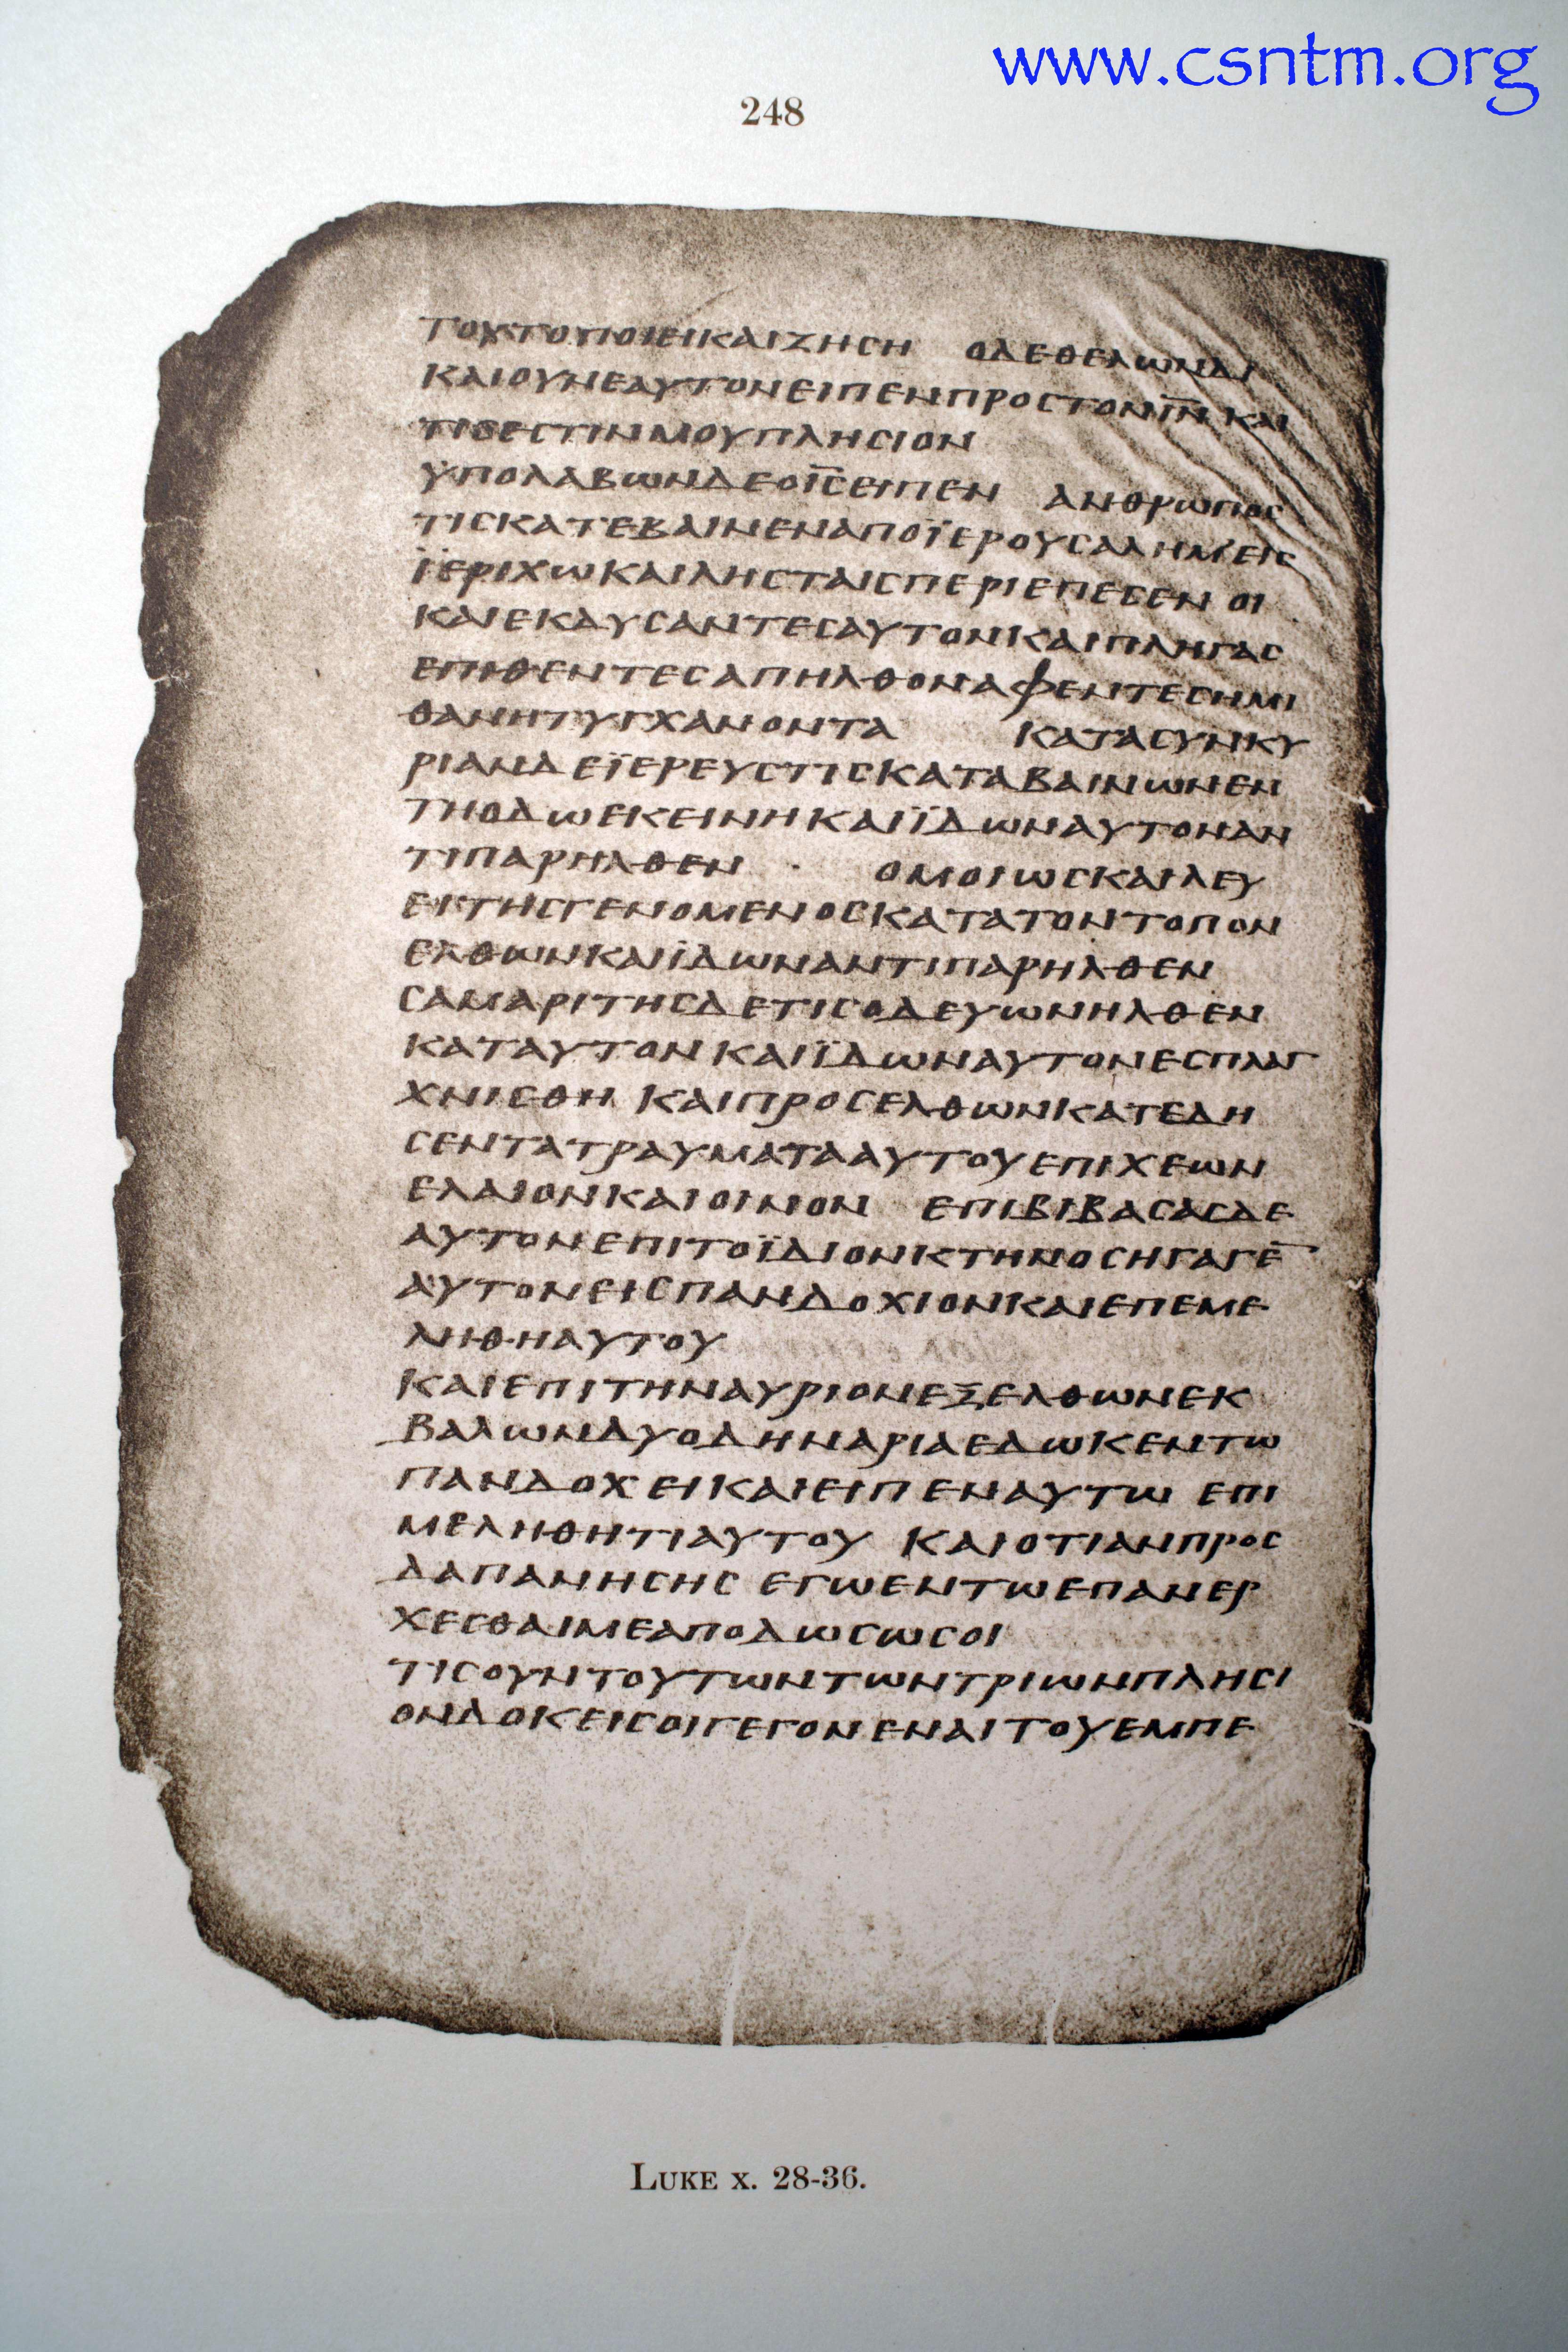 www.csntm.org
248
ΤΟΥΤΟΠΟΙΕΙΚΑΙΖΗСΗ ΟΔΕΘΕΛωΝΔΙ
ΚΑΙΟΥΝΕΑΥΤΟΝΕΙΠΕΝΠΡΟСΤΟΝΙ̅Η̅Ν̅ ΚΑΙ
ΤΙСΕСΤΙΝΜΟΥΠΛΗСΙΟΝ
ΫΠΟΛΑΒωΝΔΕΟΙ̅С̅ΕΙΠΕΝ ΑΝΘΡωΠΟС
ΤΙСΚΑΤΕΒΑΙΝΕΝΑΠΟΪΕΡΟΥСΑΛΗΜ'ΕΙС
ΪΕΡΙΧωΚΑΙΛΗСΤΑΙСΠΕΡΙΕΠΕСΕΝ ΟΙ
ΚΑΙΕΚΔΥСΑΝΤΕСΑΥΤΟΝΚΑΙΠΛΗΓΑС
ΕΠΙΘΕΝΤΕСΑΠΗΛΘΟΝΑΦΕΝΤΕСΗΜΙ
ΘΑΝΗΤΥΓΧΑΝΟΝΤΑ ΚΑΤΑСΥΝΚΥ
ΡΙΑΝΔΕΪΕΡΕΥСΤΙСΚΑΤΑΒΑΙΝωΝΕΝ
ΤΗΟΔωΕΚΕΙΝΗΚΑΙΪΔωΝΑΥΤΟΝΑΝ
ΤΙΠΑΡΗΛΘΕΝ · ΟΜΟΙωСΚΑΙΛΕΥ
ΕΙΤΗСΓΕΝΟΜΕΝΟСΚΑΤΑΤΟΝΤΟΠΟΝ
ΕΛΘωΝΚΑΙΪΔωΝΑΝΤΙΠΑΡΗΛΘΕΝ
СΑΜΑΡΙΤΗСΔΕΤΙСΟΔΕΥωΝΗΛΘΕΝ
ΚΑΤΑΥΤΟΝΚΑΙΪΔωΝΑΥΤΟΝΕСΠΛΑΓ
ΧΝΙСΘΗ ΚΑΙΠΡΟСΕΛΘωΝΚΑΤΕΔΗ
СΕΝΤΑΤΡΑΥΜΑΤΑΑΥΤΟΥΕΠΙΧΕωΝ
ΕΛΑΙΟΝΚΑΙΟΙΝΟΝ ΕΠΙΒΙΒΑСΑСΔΕ
ΑΥΤΟΝΕΠΙΤΟΪΔΙΟΝΚΤΗΝΟСΗΓΑΓΕ̅
ΑΥΤΟΝΕΙСΠΑΝΔΟΧΙΟΝΚΑΙΕΠΕΜΕ
ΛΗΘΗΑΥΤΟΥ
ΚΑΙΕΠΙΤΗΝΑΥΡΙΟΝΕΞΕΛΘωΝΕΚ
ΒΑΛωΝΔΥΟΔΗΝΑΡΙΑΕΔωΚΕΝΤω
ΠΑΝΔΟΧΕΙΚΑΙΕΙΠΕΝΑΥΤω ΕΠΙ
ΜΕΛΗΘΗΤΙΑΥΤΟΥ ΚΑΙΟΤΙΑΝΠΡΟС
ΔΑΠΑΝΗСΗС ΕΓωΕΝΤωΕΠΑΝΕΡ
ΧΕСΘΑΙΜΕΑΠΟΔωСωСΟΙ
ΤΙСΟΥΝΤΟΥΤωΝΤωΝΤΡΙωΝΠΛΗСΙ
ΟΝΔΟΚΕΙСΟΙΓΕΓΟΝΕΝΑΙΤΟΥΕΜΠΕ
LUKE X. 28-36.